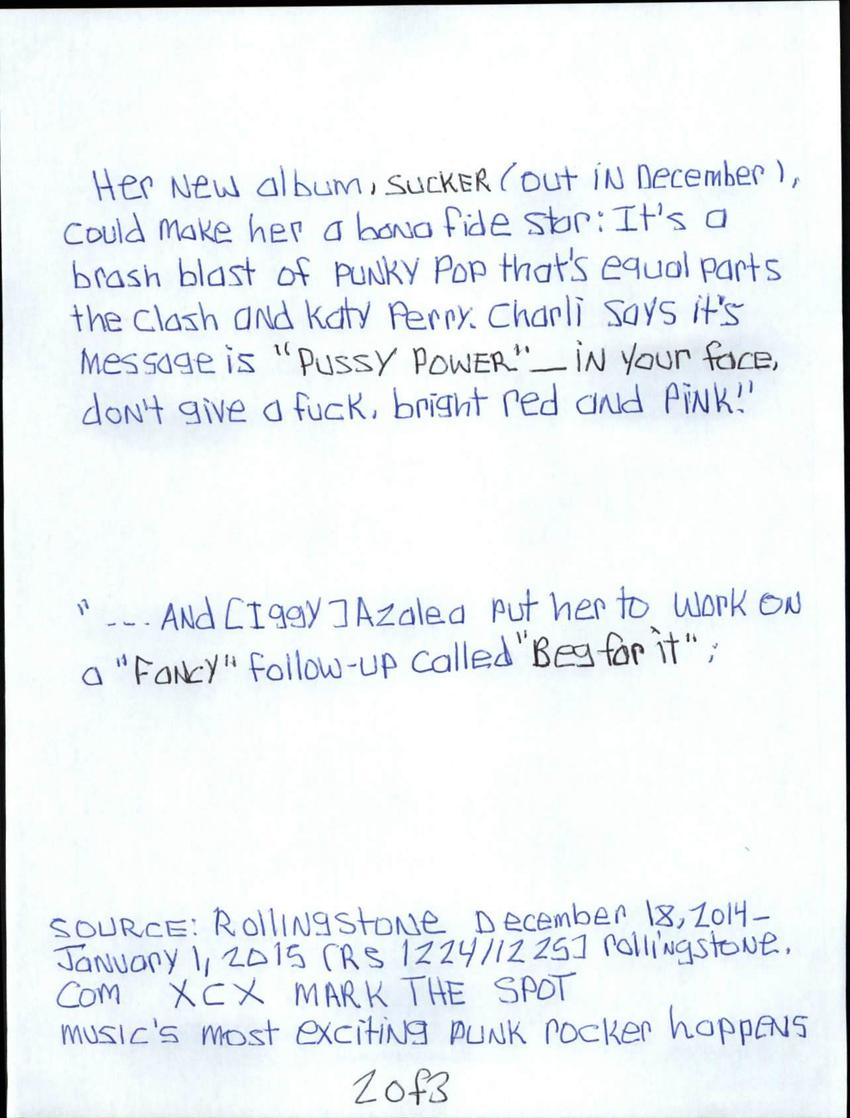 Her New album, SUCKER (out in December),
could make her a bona fide star: It's a
brash blast of PUNKY POP that's equal parts
the Clash and Katy Perry. Charli says it's
message is "PUSSY POWER" — in your face,
don't give a fuck, bright red and PINK!"
" --- And [Iggy] Azalea put her to work on
a "FANCY" follow-up called "Beg for it" ;
SOURCE: Rollingstone December 18, 2014-
January 1, 2015 [RS 1224/1225] rollingstone.
Com XCX MARK THE SPOT
music's most exciting punk rocker happens
2 of 3